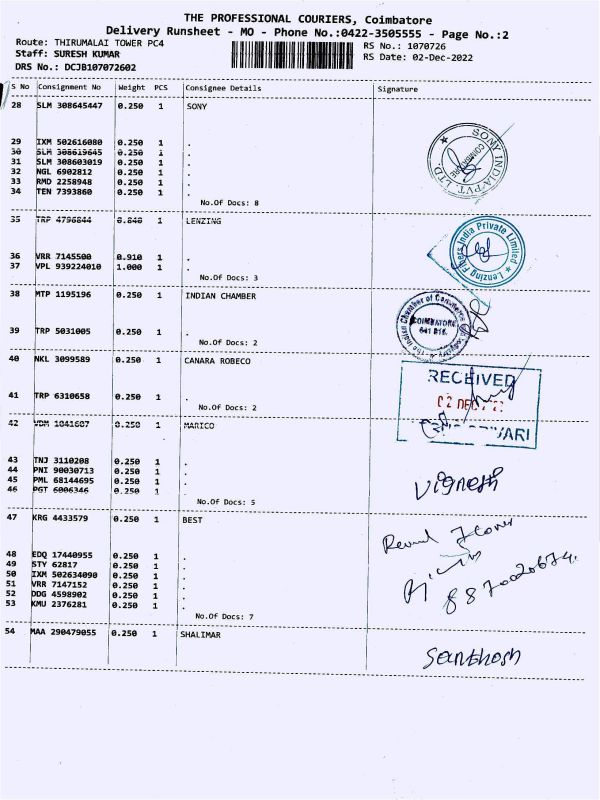 THE PROFESSIONAL COURIERS, Coimbatore
Delivery Runsheet - MO - Phone No.:0422-3505555 - Page No.:2
Route: THIRUMALAI TOWER PC4
RS No.: 1070726
Staff: SURESH KUMAR
RS Date: 02-Dec-2022
DRS No.: DCJB107072602
S No Consignment No Weight PCS Consignee Details Signature
28 SLM 308645447 0.250 1 SONY
SONY INDIA PVT. LTD.
COIMBATORE
29 IXM 502616080 0.250 1 .
30 SLM 308619645 0.250 1 .
31 SLM 308603019 0.250 1 .
32 NGL 6902812 0.250 1 .
33 RMD 2258948 0.250 1 .
34 TEN 7393860 0.250 1 .
No.Of Docs: 8
35 TRP 4796844 0.840 1 LENZING
Lenzing Fibers India Private Limited
36 VRR 7145500 0.910 1 .
37 VPL 939224010 1.000 1 .
No.Of Docs: 3
38 MTP 1195196 0.250 1 INDIAN CHAMBER
The Indian Chamber of Commerce & Industry
COIMBATORE
641 018.
39 TRP 5031005 0.250 1 .
No.Of Docs: 2
40 NKL 3099589 0.250 1 CANARA ROBECO
RECEIVED
02 DEC
41 TRP 6310658 0.250 1 .
No.Of Docs: 2
42 VDM 1041607 0.250 1 MARICO
43 TNJ 3110208 0.250 1 .
44 PNI 90030713 0.250 1 .
45 PML 68144695 0.250 1 .
46 PGT 6006346 0.250 1 .
No.Of Docs: 5
Vignesh
47 KRG 4433579 0.250 1 BEST
48 EDQ 17440955 0.250 1 .
49 STY 62817 0.250 1 .
50 IXM 502634090 0.250 1 .
51 VRR 7147152 0.250 1 .
52 DDG 4598902 0.250 1 .
53 KMU 2376281 0.250 1 .
No.Of Docs: 7
54 MAA 290479055 0.250 1 SHALIMAR
Santhosh